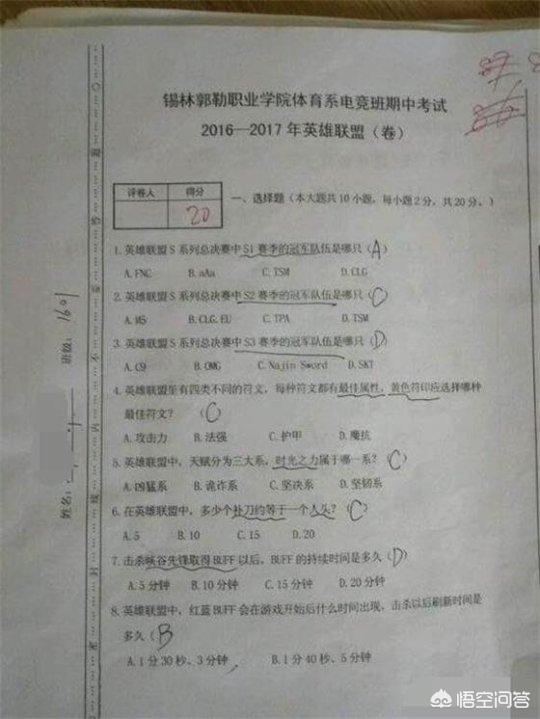 锡林郭勒职业学院体育系电竞班期中考试
2016—2017年英雄联盟（卷）
评卷人 得分
20
一、选择题（本大题共10小题，每小题2分，共20分。）
1.英雄联盟S系列总决赛中S1赛季的冠军队伍是哪只（A）
A.FNC B.aAa C.TSM D.CLG
2.英雄联盟S系列总决赛中S2赛季的冠军队伍是哪只（C）
A.M5 B.CLG.EU C.TPA D.TSM
3.英雄联盟S系列总决赛中S3赛季的冠军队伍是哪只（D）
A.C9 B.OMG C.Najin Sword D.SKT
4.英雄联盟里有四类不同的符文，每种符文都有最佳属性，黄色符印应选择哪种
最佳符文？（C）
A.攻击力 B.法强 C.护甲 D.魔抗
5.英雄联盟中，天赋分为三大系，时光之力属于哪一系？（C）
A.凶猛系 B.诡诈系 C.坚决系 D.坚韧系
6.在英雄联盟中，多少个补刀约等于一个人头？（C）
A.5 B.10 C.15 D.20
7.击杀峡谷先锋取得BUFF以后，BUFF的持续时间是多久（D）
A.5分钟 B.10分钟 C.15分钟 D.20分钟
8.英雄联盟中，红蓝BUFF会在游戏开始后什么时间出现，击杀以后刷新时间是
多久（B）
A.1分30秒、3分钟 B.1分40秒、5分钟
班级：1601
姓名：
悟空问答